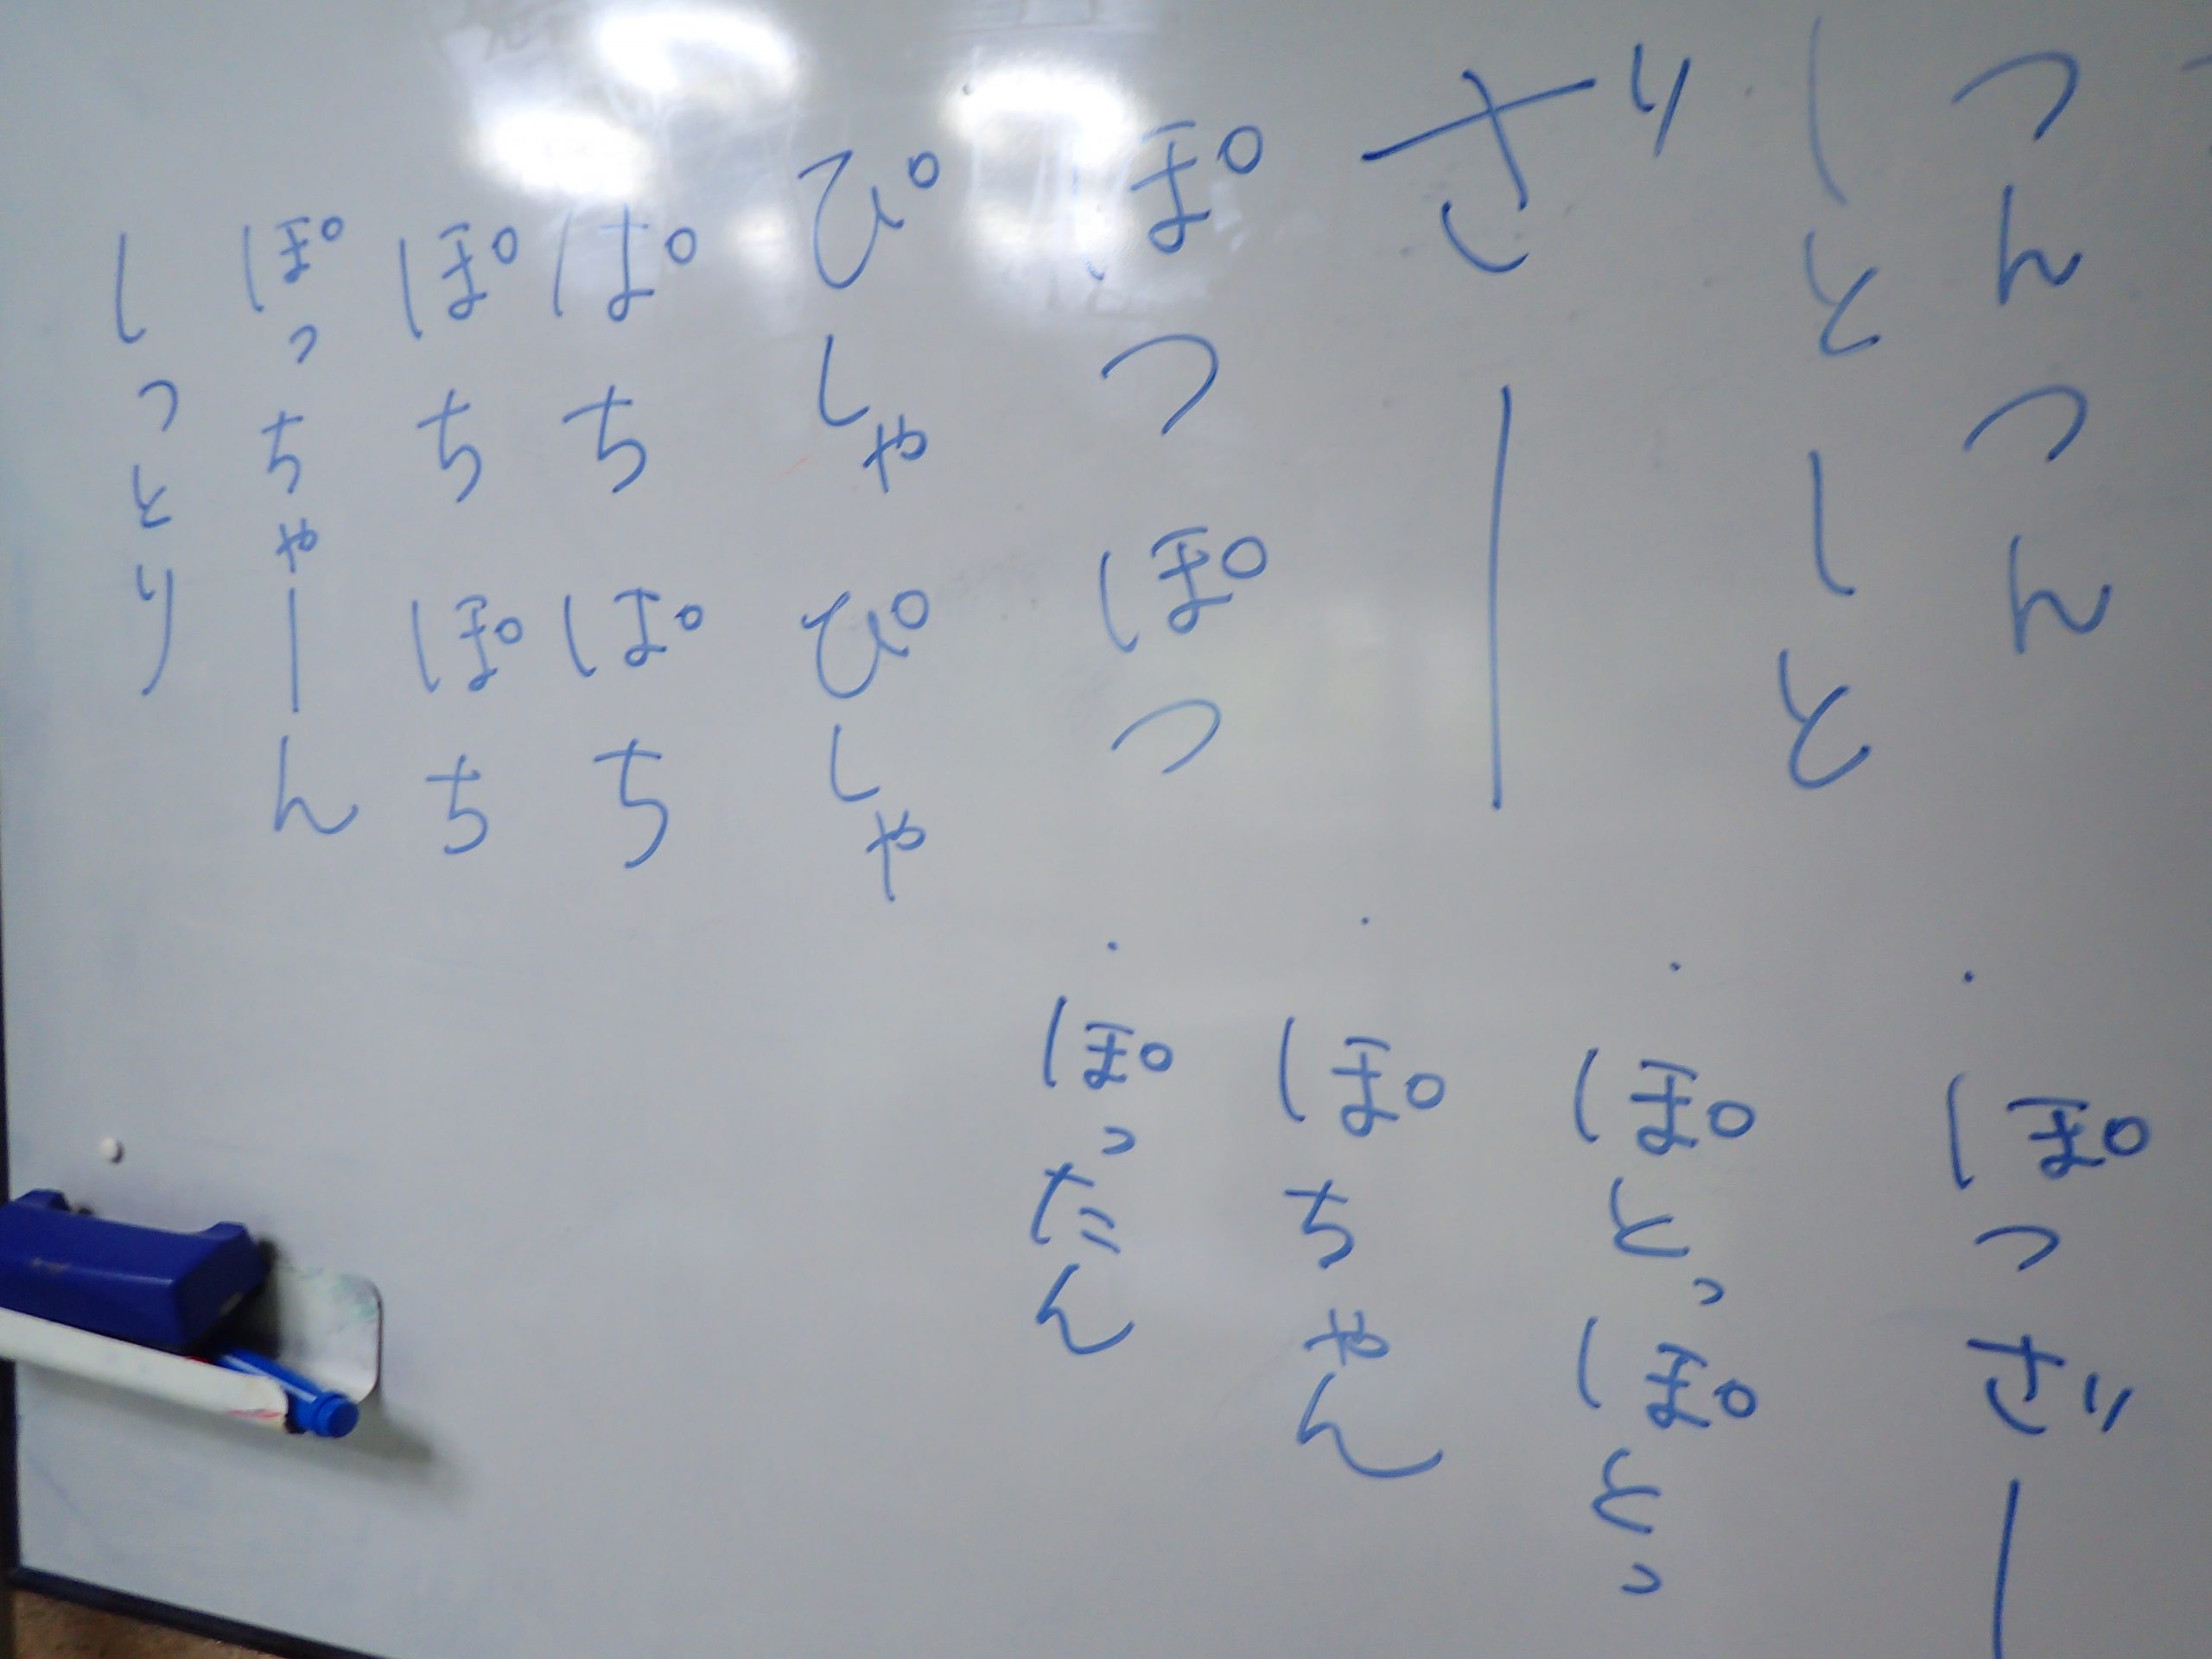 つんつん
しとしと
ざー
ぽつぽつ
ぴしゃぴしゃ
ぱちぱち
ぽちぽち
ぽっちゃーん
しっとり
・ぽつざー
・ぽとっぽとっ
・ぽちゃん
・ぽったん